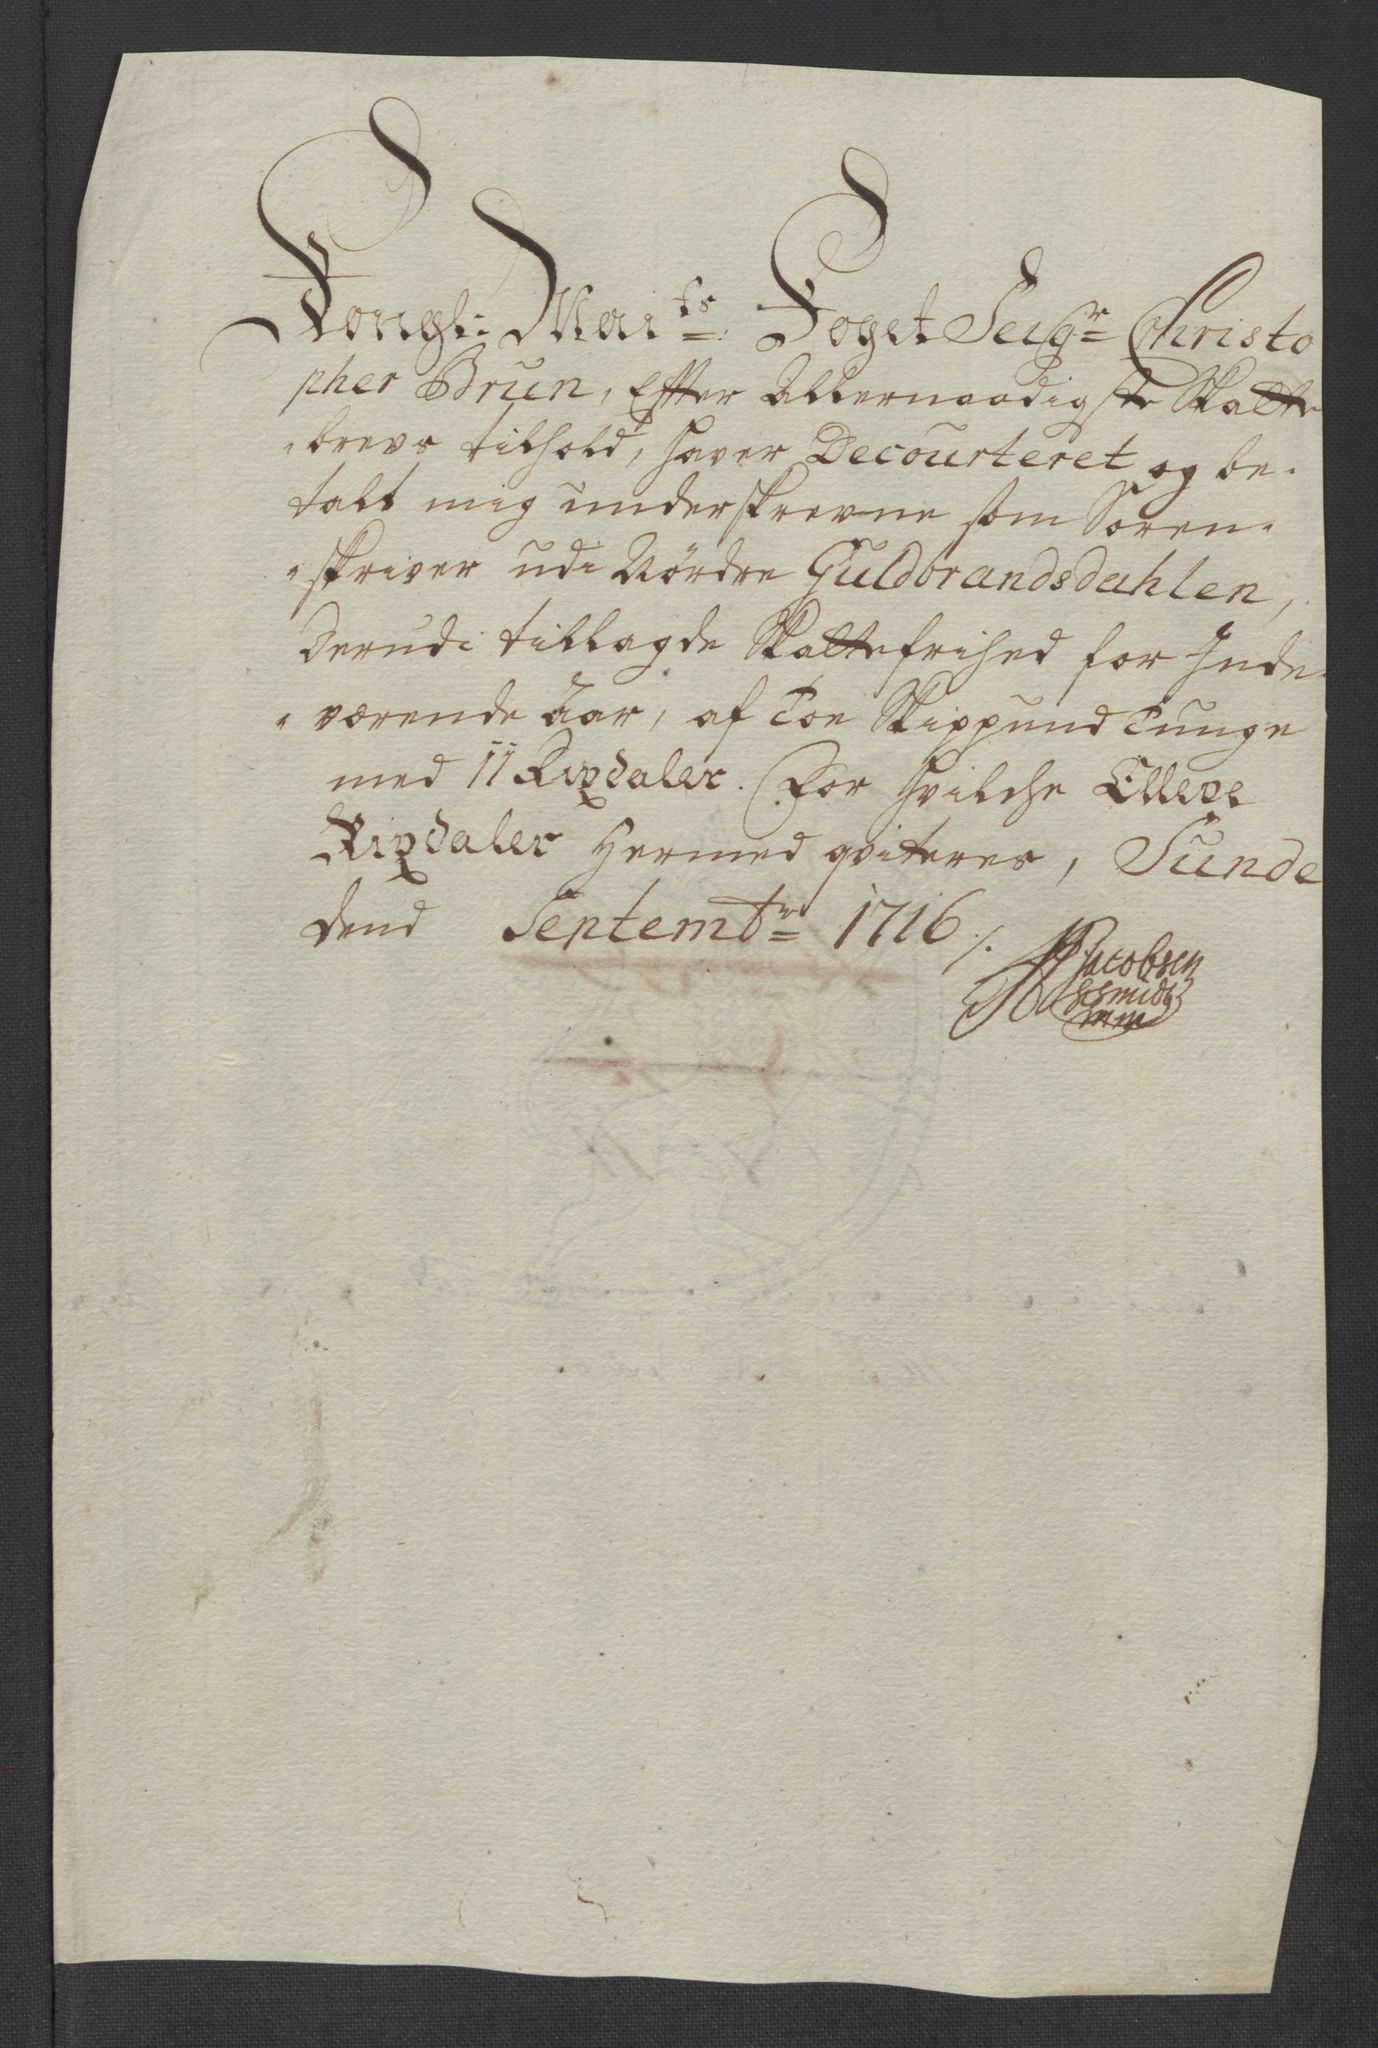 Kongl: Maits: Foget Seigr Christo
pher Brun, Efter Allernaadigste Skatte
brevs tilhold, haver Decourteret og be-
talt mig underskrevne som Soren-
skriver udi Nördre Guldbrandsdahlen,
Derudi tillagde Skattefrihed for Inde-
værende Aar, af Toe Skippund Tunge
med 11 Rixdaler. For hvilche Elleve
Rixdaler Hermed qviteres, Sunde
dend Septembr 1716 /.
Jacobsen
Schmidt
mm